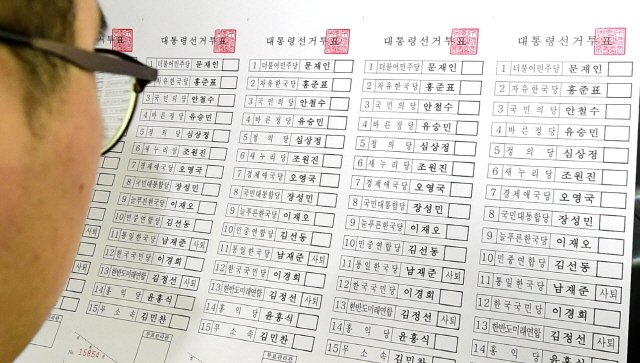 표
대통령선거투표
1 더불어민주당 문재인
2 자유한국당 홍준표
3 국민의당 안철수
4 바른정당 유승민
5 정의당 심상정
6 새누리당 조원진
7 경제애국당 오영국
8 국민대통합당 장성민
9 늘푸른한국당 이재오
10 민중연합당 김선동
11 통일한국당 남재준 사퇴
12 한국국민당 이경희
13 한반도미래연합 김정선 사퇴
14 홍익당 윤홍식
15 무소속 김민찬
No 15854
대통령선거투표
1 더불어민주당 문재인
2 자유한국당 홍준표
3 국민의당 안철수
4 바른정당 유승민
5 정의당 심상정
6 새누리당 조원진
7 경제애국당 오영국
8 국민대통합당 장성민
9 늘푸른한국당 이재오
10 민중연합당 김선동
11 통일한국당 남재준 사퇴
12 한국국민당 이경희
13 한반도미래연합 김정선 사퇴
14 홍익당 윤홍식
15 무소속 김민찬
대통령선거투표
1 더불어민주당 문재인
2 자유한국당 홍준표
3 국민의당 안철수
4 바른정당 유승민
5 정의당 심상정
6 새누리당 조원진
7 경제애국당 오영국
8 국민대통합당 장성민
9 늘푸른한국당 이재오
10 민중연합당 김선동
11 통일한국당 남재준 사퇴
12 한국국민당 이경희
13 한반도미래연합 김정선 사퇴
14 홍익당 윤홍식
15 무소속 김민찬
대통령선거투표
1 더불어민주당 문재인
2 자유한국당 홍준표
3 국민의당 안철수
4 바른정당 유승민
5 정의당 심상정
6 새누리당 조원진
7 경제애국당 오영국
8 국민대통합당 장성민
9 늘푸른한국당 이재오
10 민중연합당 김선동
11 통일한국당 남재준 사퇴
12 한국국민당 이경희
13 한반도미래연합 김정선 사퇴
14 홍익당 윤홍식